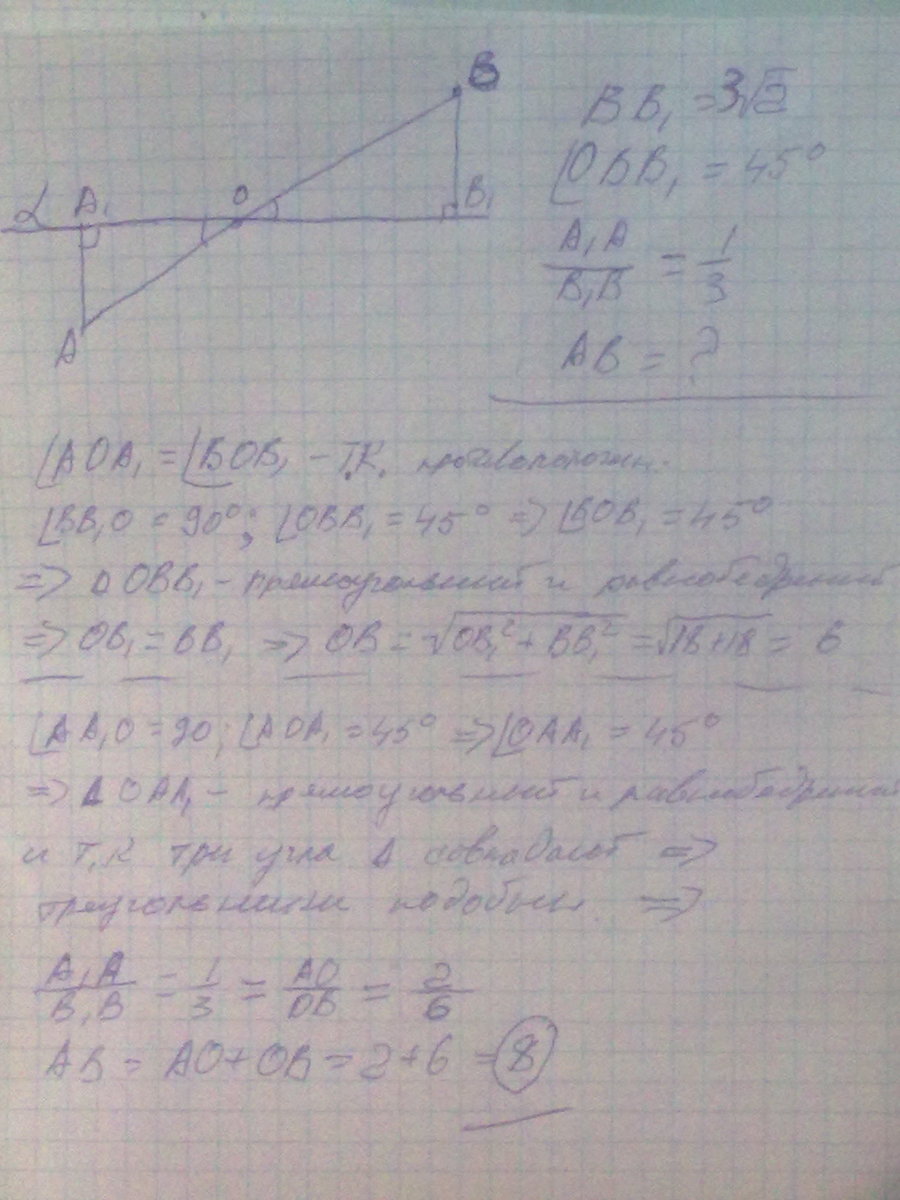 B
α A₁ O B₁
A
BB₁ = 3√2
∠OBB₁ = 45°
A₁A/B₁B = 1/3
AB = ?
∠AOA₁ = ∠BOB₁ – т.к. противополож.
∠BB₁O = 90°; ∠OBB₁ = 45° => ∠BOB₁ = 45°
=> Δ OBB₁ – прямоугольный и равнобедренный
=> OB₁ = BB₁ => OB = √(OB₁² + BB₁²) = √(18+18) = 6
∠AA₁O = 90; ∠AOA₁ = 45° => ∠OAA₁ = 45°
=> Δ OAA₁ – прямоугольный и равнобедренный
и т.к три угла Δ совпадают =>
треугольники подобны =>
A₁A/B₁B = 1/3 = AO/OB = 2/6
AB = AO + OB = 2 + 6 = 8